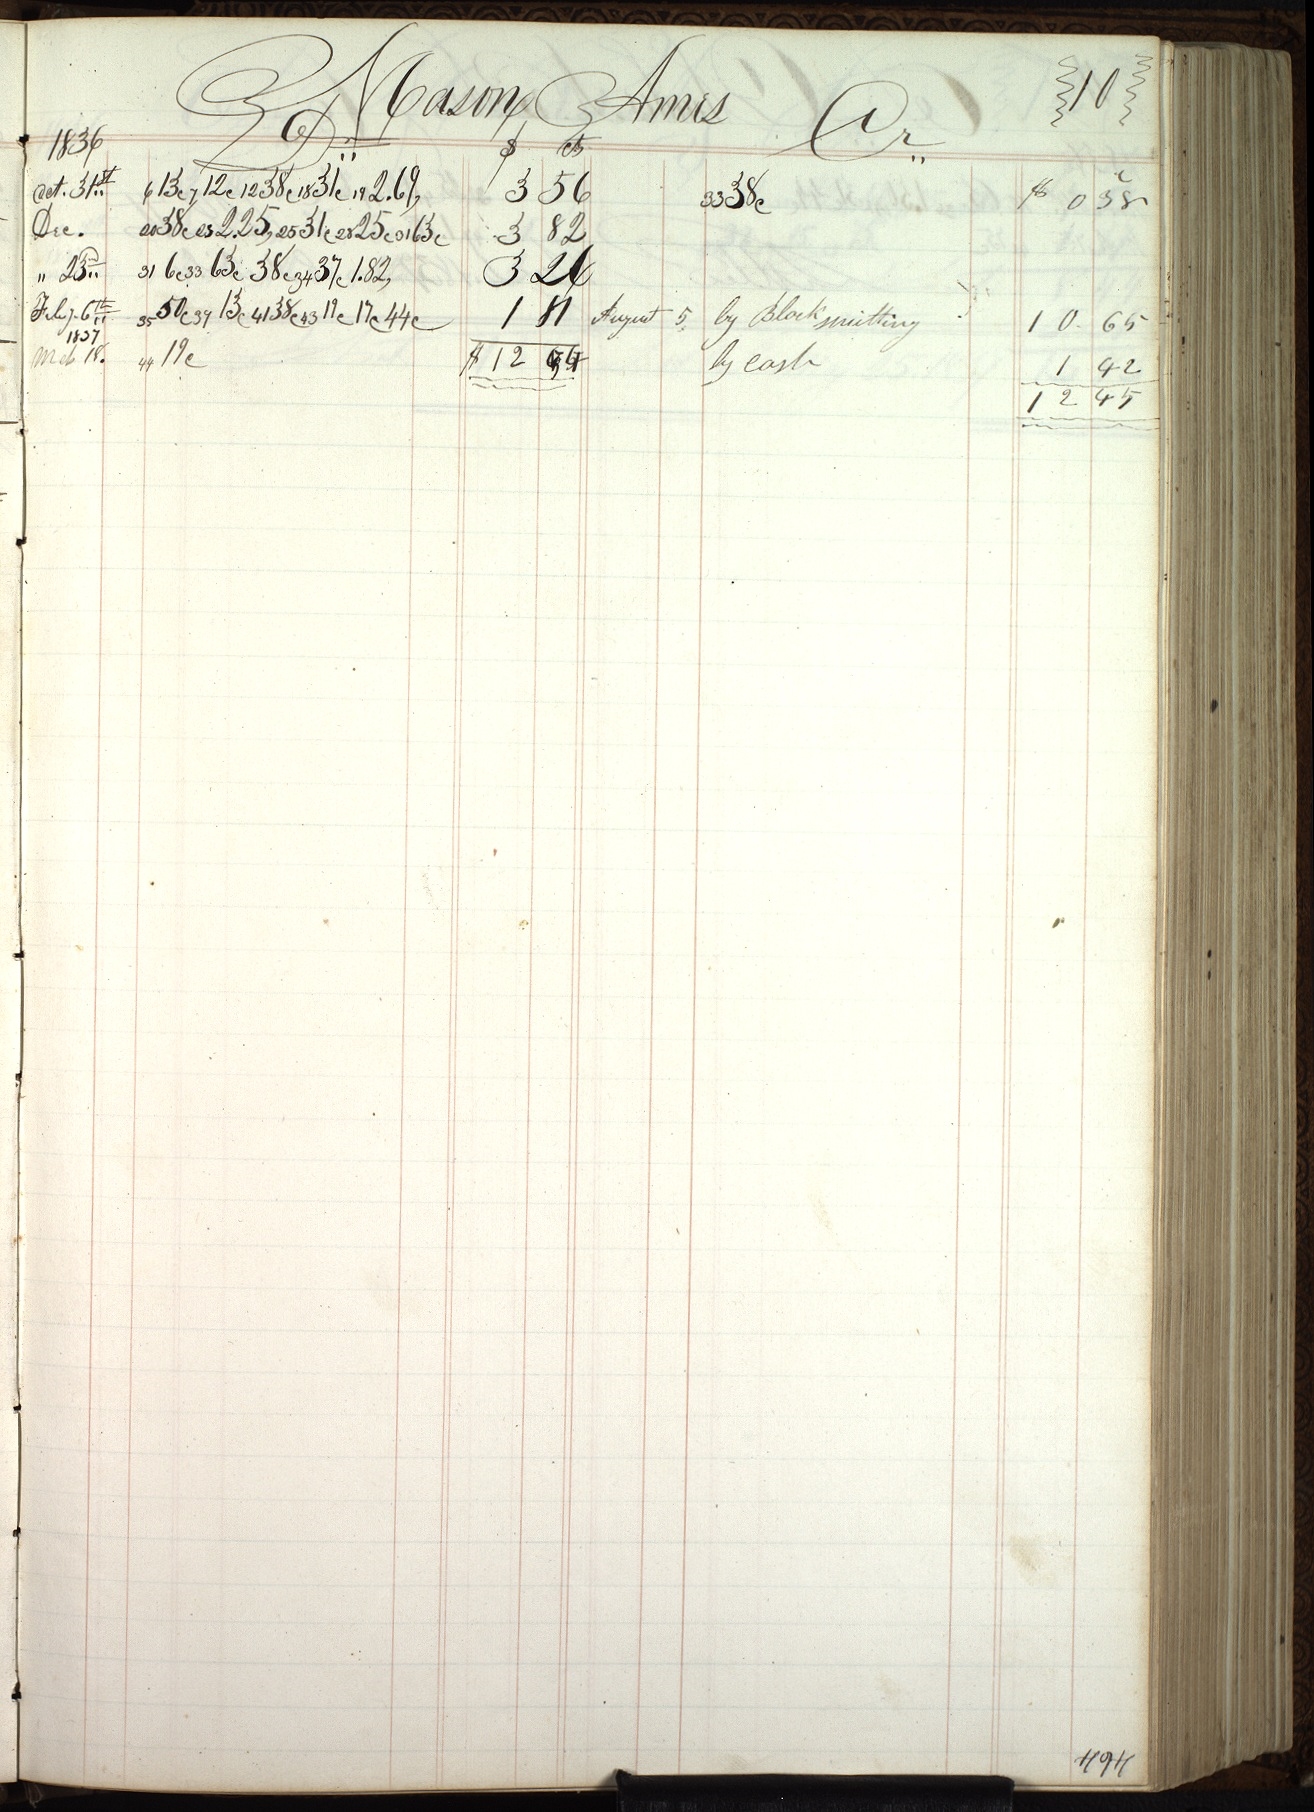 Mason Ames Cr 10
1836 Dr $ cts
Oct. 31st 6 13c 7 12c 12 38c 18 31c 19 2.69, 3 56 33 38c $ 0 38c
Dec. 20 38c 23 2.25, 25 31c 28 25c 31 63c 3 82
" 23d 31 6c 33 63c 38c 34 37c 1.82, 3 26
Feby. 6th 35 50c 39 13c 41 38c 43 19c 17c 44c 1 81 August 5, by Blacksmithing 10 65
1837
Mch 18. 44 19c $12 64 by cash 1 42
12 45